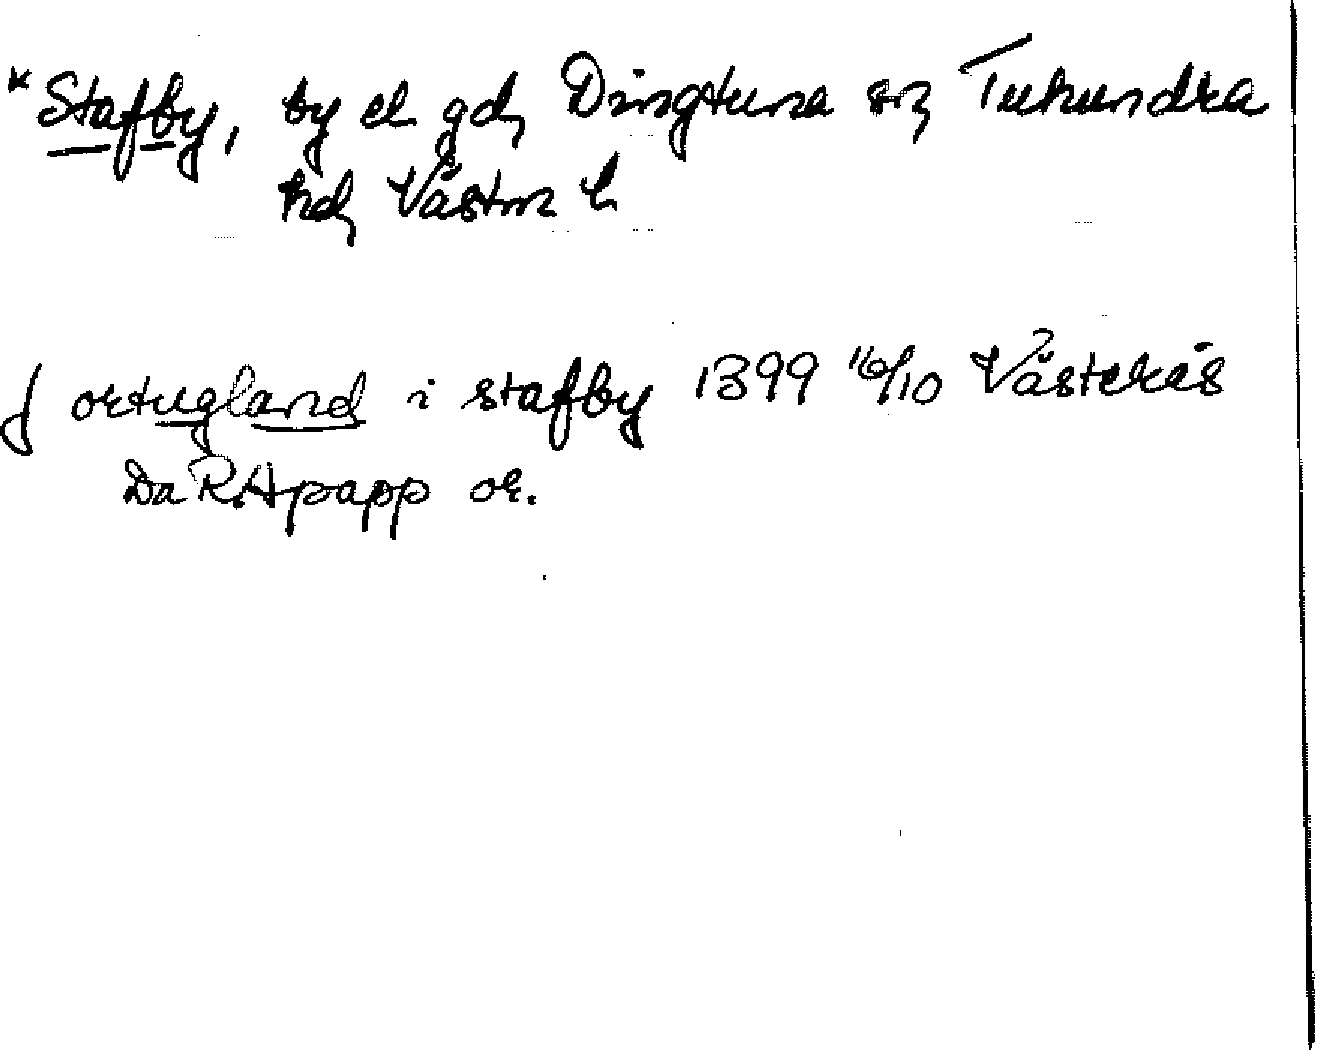 *Stafby, by el gd, Dingtuna sn, Tuhundra
hd, Västm l.
j ortugland i stafby 1399 16/10 Västerås
Da RApapp or.